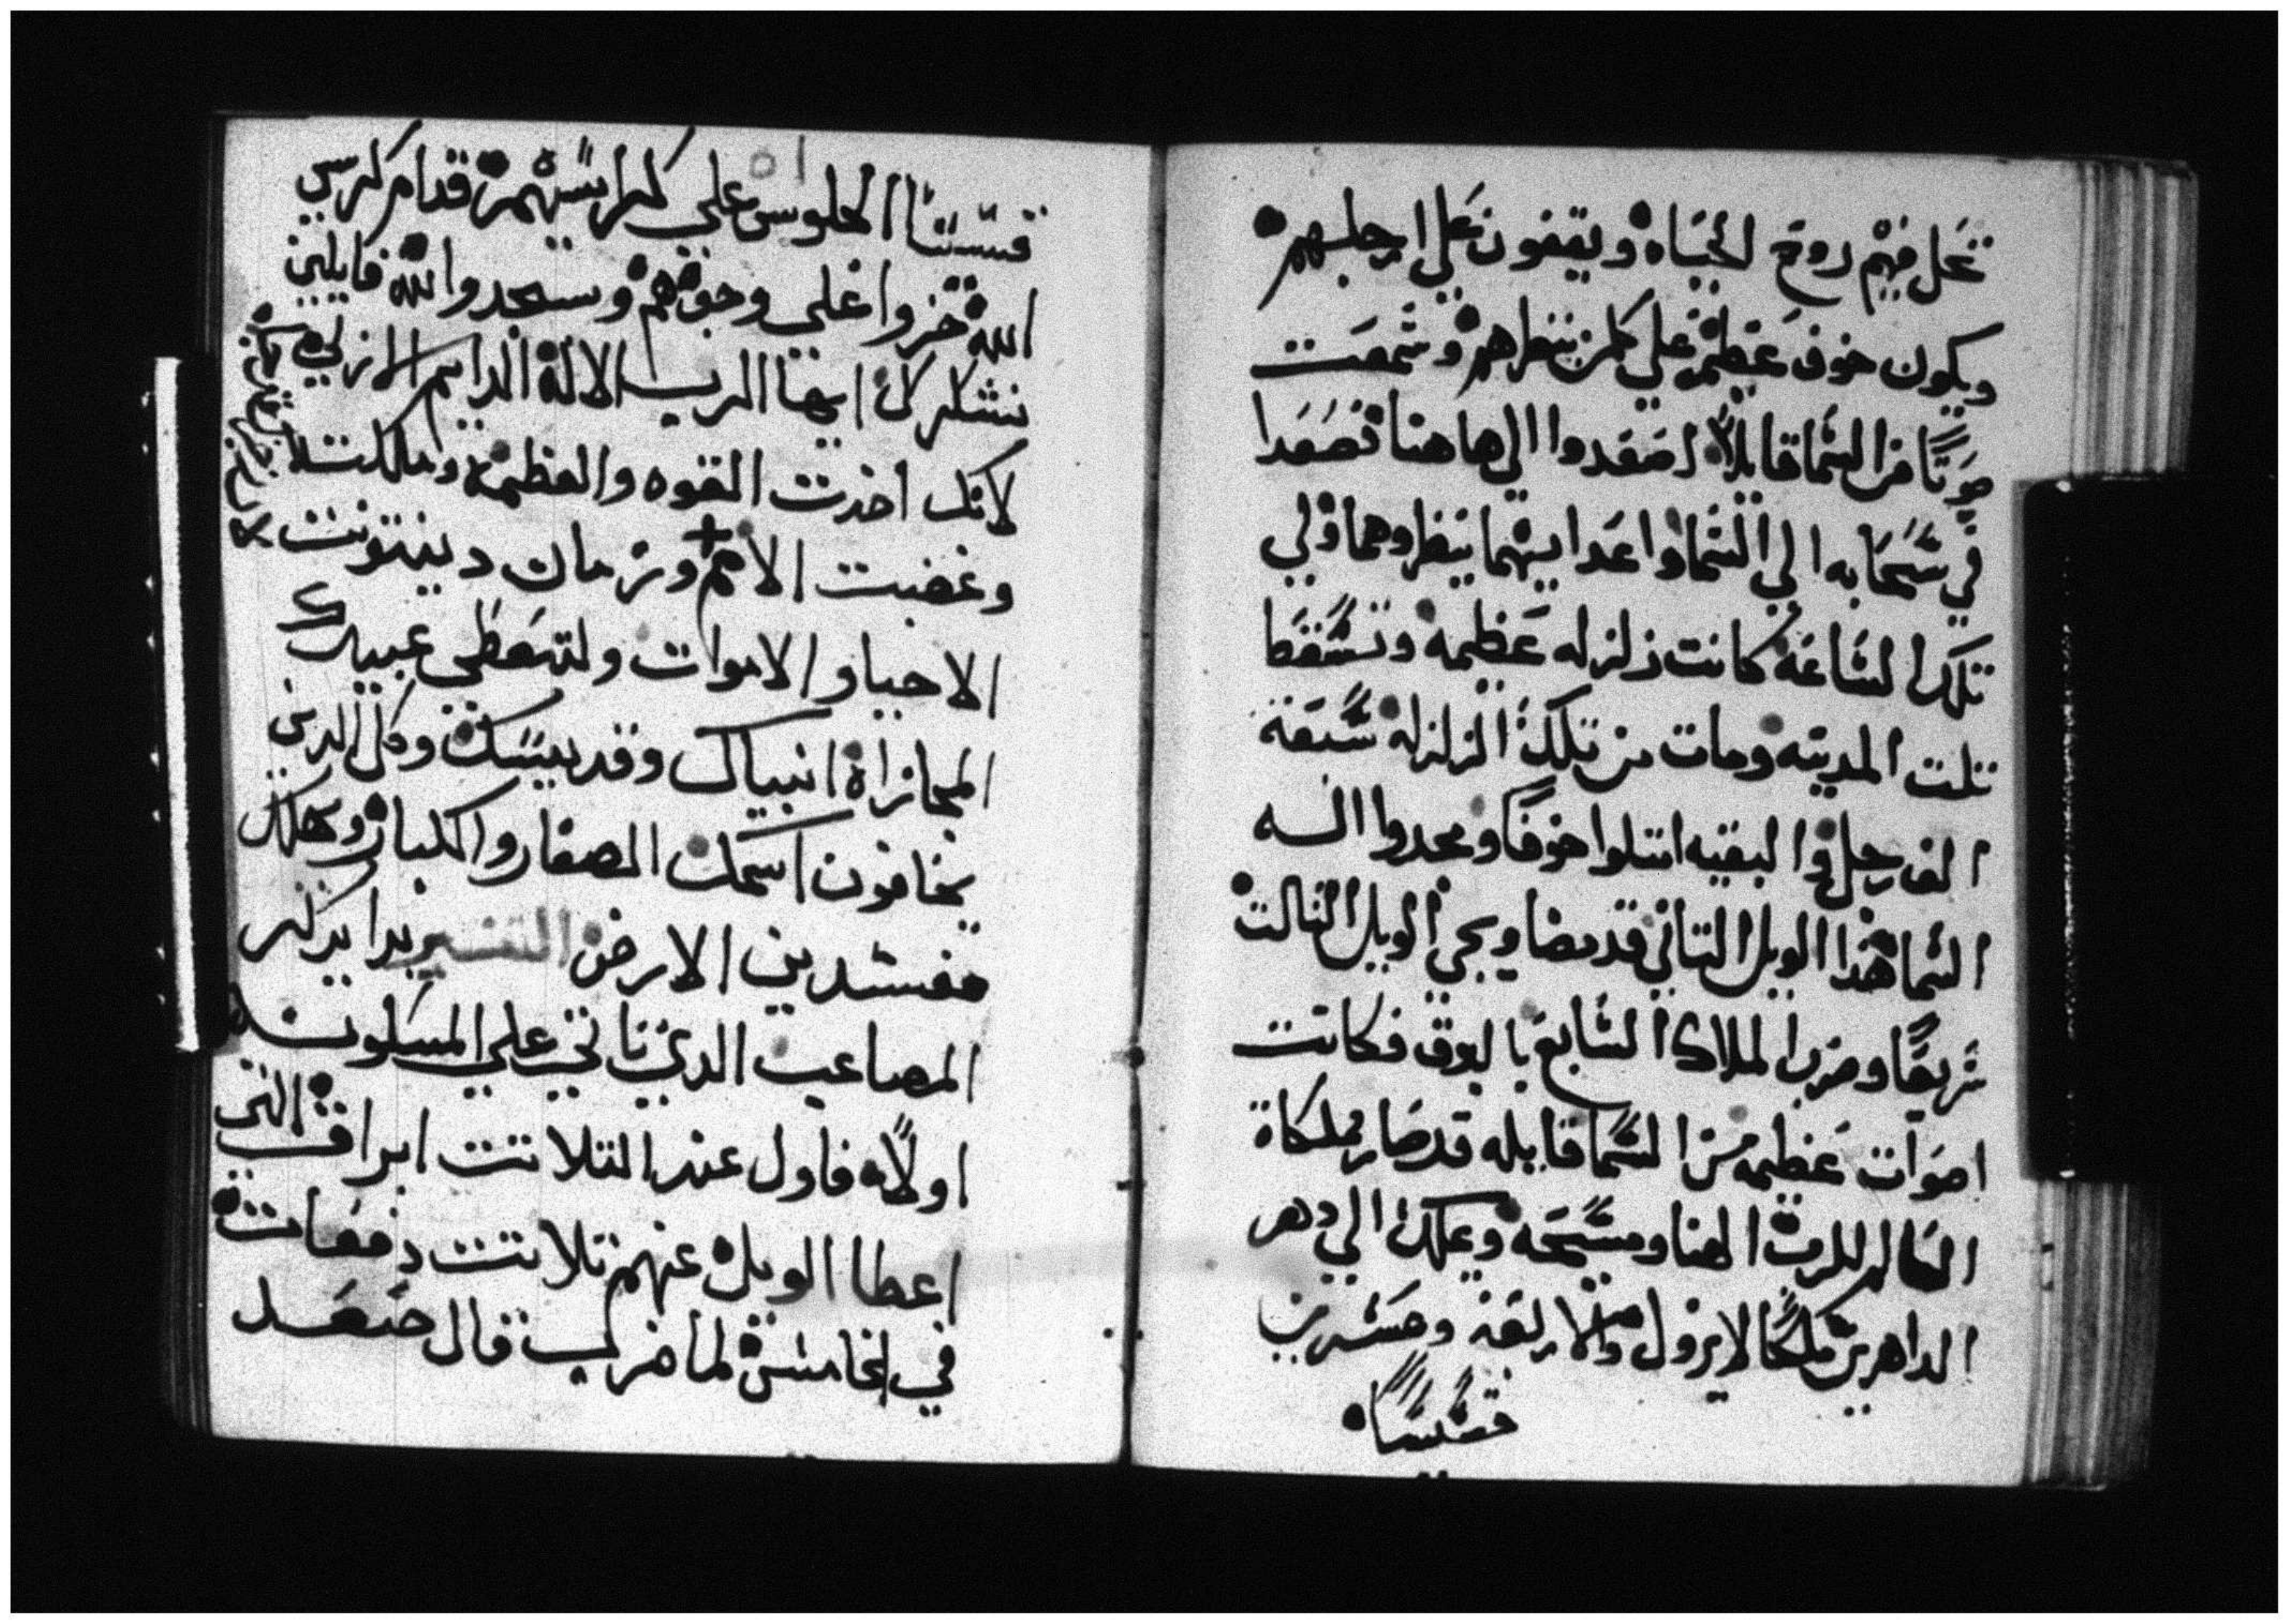 تحل فيهم روح الحياه ويقفون على ارجلهم
ويكون خوف عظيم علي كلمن ينظرهم وسمعت
صوتًا من السما قايلاً اصعدوا الي هاهنا فصعدا
في سحابه الي السما واعدايهما ينظروهما وفي
تلك الساعة كانت زلزله عظيمه وتسقط
تلت المدينه ومات من تلك الزلزله سبعة
الف رجل والبقيه امتلوا خوفًا ومجدوا اله
السما هذا الويل التاني قد مضا ويجي الويل التالت
سريعًا وضرب الملاك السابع بالبوق فكانت
اصوات عظيمه من السما قايله قد صار مملكاة
العالم للرب الهنا ومسيحه ويملك الي دهر
الداهرين ملكًا لا يزول والاربعة وعشرين
قسيسًا
قسيسًا الجلوس علي كراسيهم قدام كرسي
الله خروا علي وجوههم وسجدوا لله قايلين
نشكرك ايها الرب الاله الدايم الازلي
لانك اخدت القوه والعظمه وملكت
وغضبت الامم وزمان دينونت
الاحيا والاموات ولتعطي عبيدك
المجازاة انبياك وقديسيك وكل الدين
يخافون اسمك الصغار والكبار وتهلك
مفسدين الارض التفسير بدا يذكر
المصاعب الدي تاتي علي المسكونه
اولاً فاول عند التلاتت ابواق التي
اعطا الويل عنهم تلاتت دفعات
في الخامسة لما ضرب قال صعد